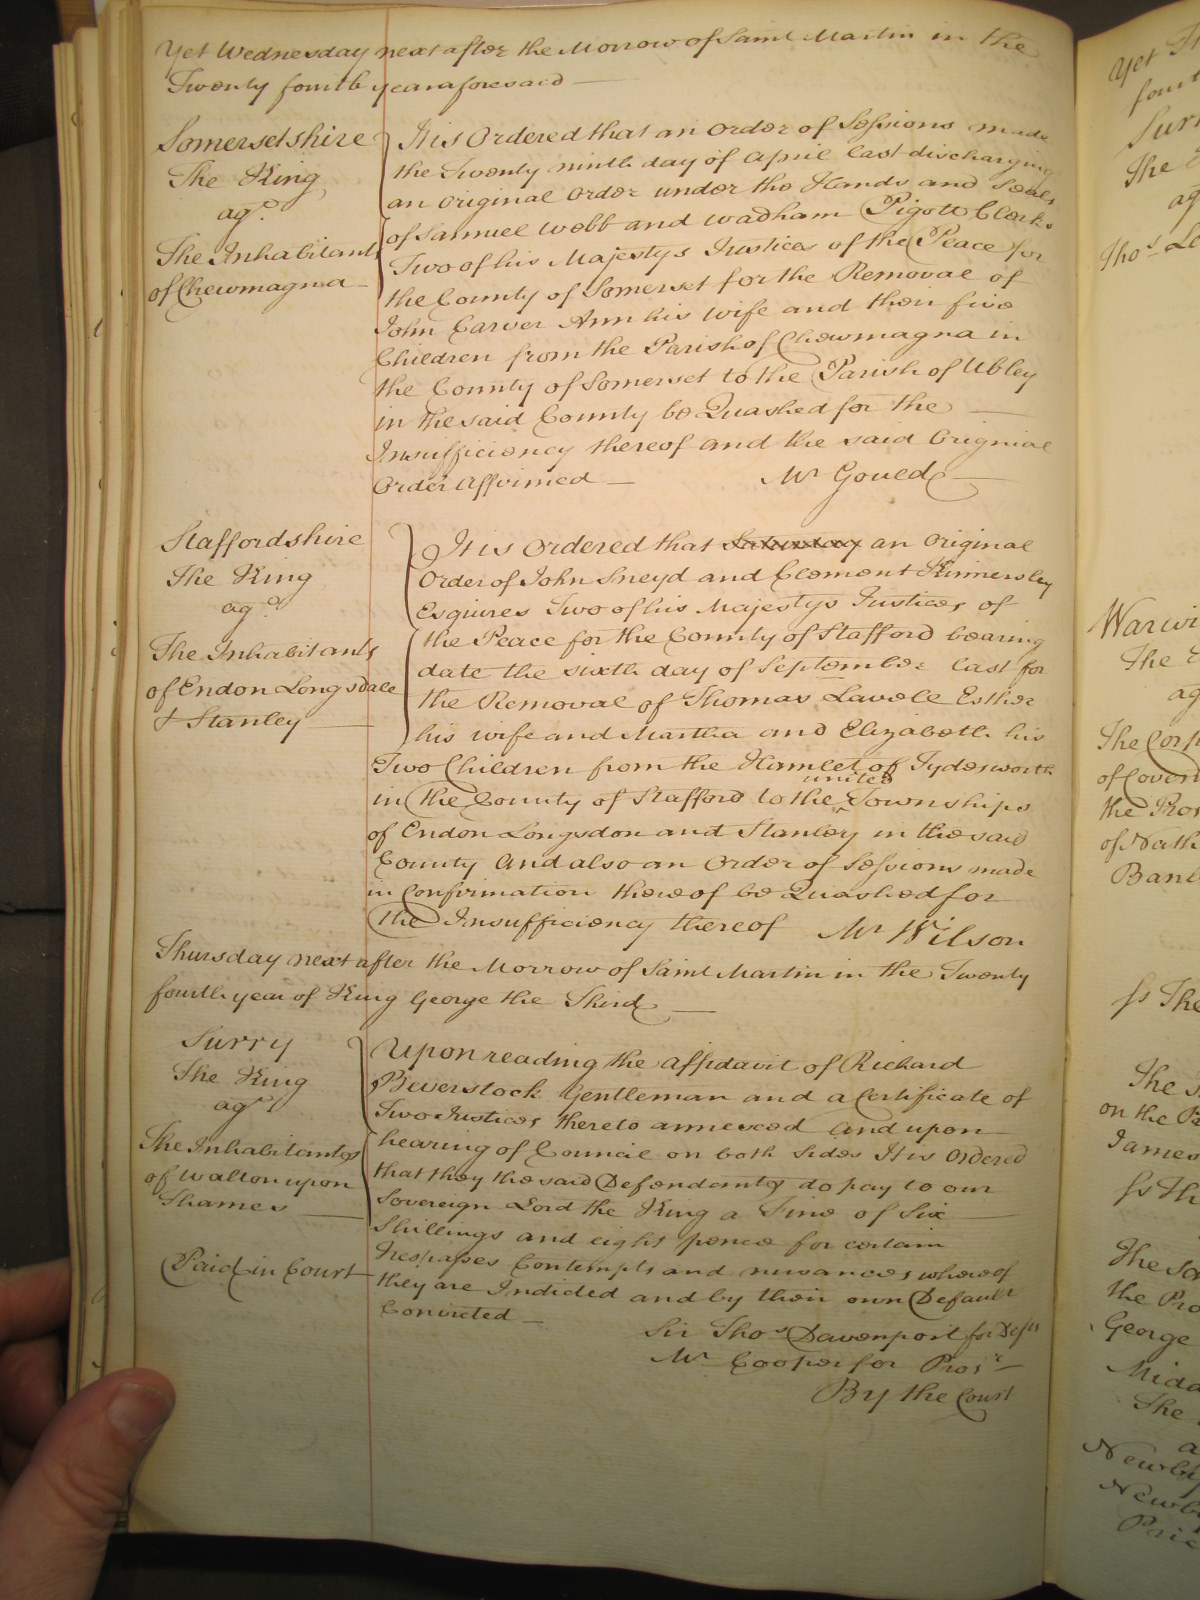 Yet Wednesday next after the Morrow of Saint Martin in the
Twenty fourth year aforesaid
Somersetshire
The King
agt.
The Inhabitants
of Chewmagna
It is Ordered that an Order of Sessions made
the Twenty ninth day of April last discharging
an Original Order under the Hands and Seals
of Samuel Webb and Wadham Pigott Clerks
Two of his Majestys Justices of the Peace for
the County of Somerset for the Removal of
John Carver Ann his Wife and their five
Children from the Parish of Chewmagna in
the County of Somerset to the Parish of Ubley
in the said County be Quashed for the
Insufficiency thereof and the said Original
Order Affirmed
Mr Gould
Staffordshire
The King
agt.
The Inhabitants
of Endon Longsdale
& Stanley
It is Ordered that Saturday an Original
Order of John Sneyd and Clement Kinnersley
Esquires Two of his Majestys Justices of
the Peace for the County of Stafford bearing
date the sixth day of September last for
the Removal of Thomas Lavele Esther
his wife and Martha and Elizabeth his
Two Children from the Hamlet of Tydesworth
in the County of Stafford to the united Townships
of Endon Longsdon and Stanley in the said
County And also an Order of Sessions made
in Confirmation thereof be Quashed for
the Insufficiency thereof Mr Wilson
Thursday next after the Morrow of Saint Martin in the Twenty
fourth year of King George the Third
Surry
The King
agt
The Inhabitants
of Walton upon
Thames
Paid in Court
Upon reading the Affidavit of Richard
Beverstock Gentleman and a Certificate of
Two Justices thereto annexed And upon
hearing of Council on both sides It is Ordered
that they the said Defendants do pay to our
Sovereign Lord the King a Fine of Six
Shillings and eight pence for certain
Trespasses Contempts and nusances whereof
they are Indicted and by their own Default
Convicted
Sir Thos Davenport for Defts
Mr Cooper for Prosr
By the Court
Yet
Surr
The
ag
Thos Le
Warwi
The
ag
The Corp
of Coven
the Pros
of Nath
Banb
ss The
The
on the
James
ss Th
The Sa
the Pro
George
Midd
The
a
Newb
Newb
Paid